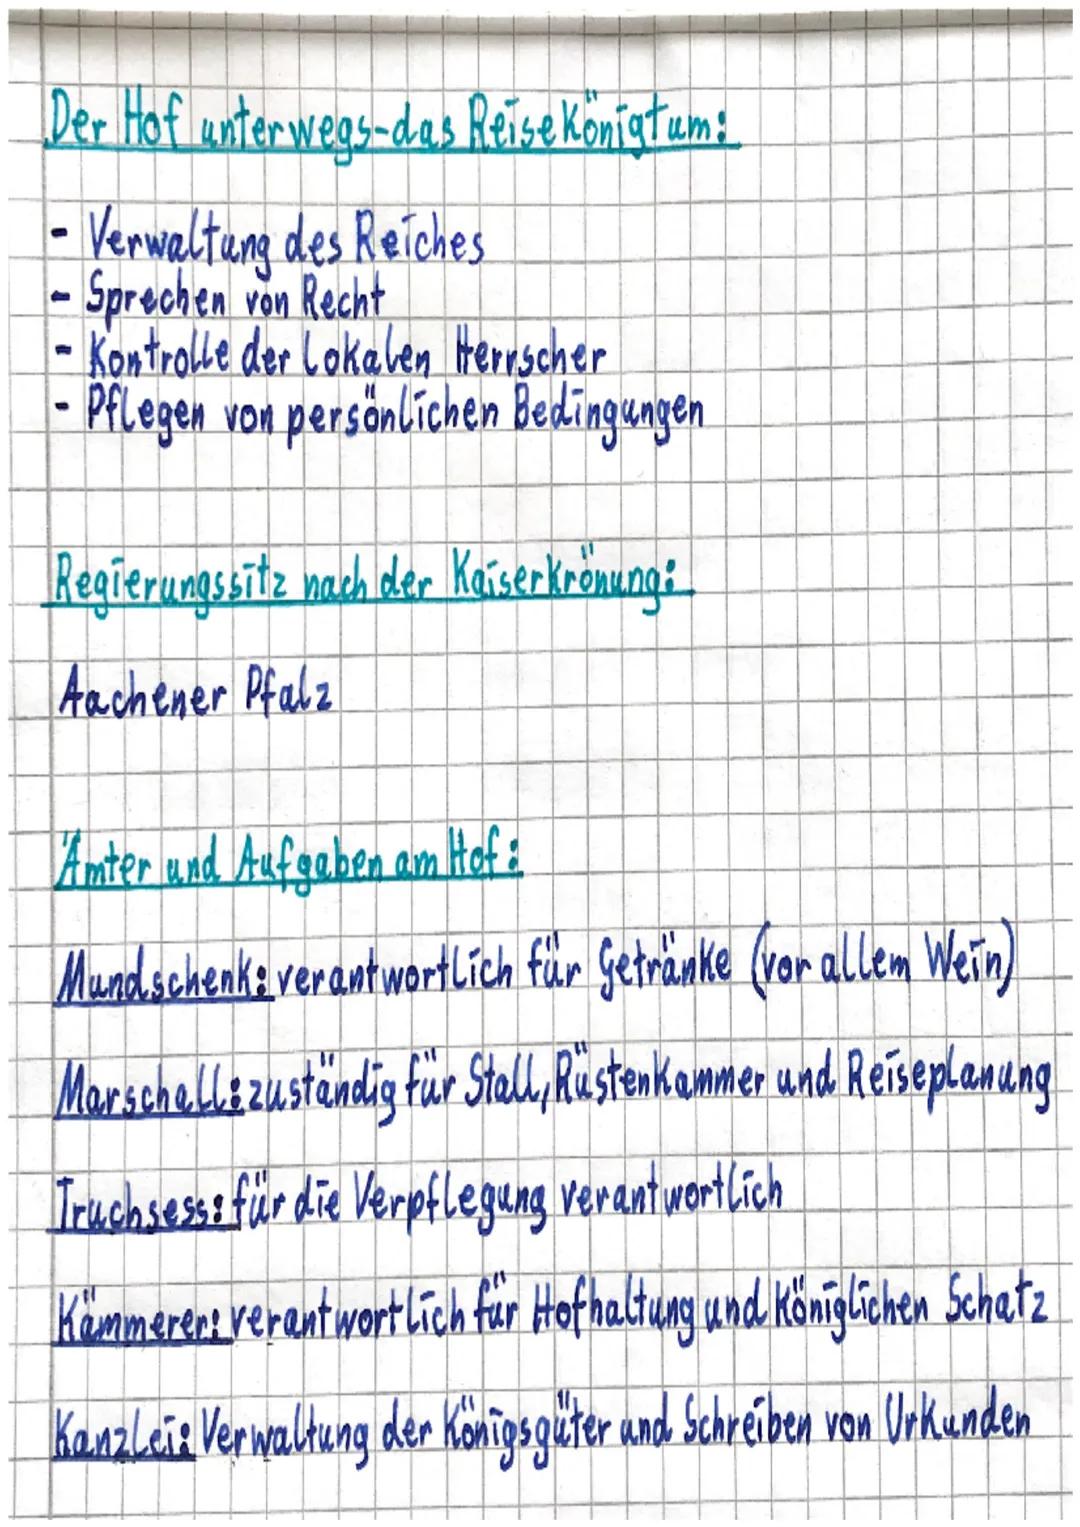 Der Hof unterwegs-das Reisekönigtum:
- Verwaltung des Reiches
- Sprechen von Recht
- Kontrolle der lokalen Herrscher
- Pflegen von persönlichen Bedingungen
Regierungssitz nach der Kaiserkrönung:
Aachener Pfalz
Ämter und Aufgaben am Hof:
Mundschenk: verantwortlich für Getränke (vor allem Wein)
Marschall: zuständig für Stall, Rüstenkammer und Reiseplanung
Truchsess: für die Verpflegung verantwortlich
Kämmerer: verantwortlich für Hofhaltung und königlichen Schatz
Kanzlei: Verwaltung der Königsgüter und Schreiben von Urkunden